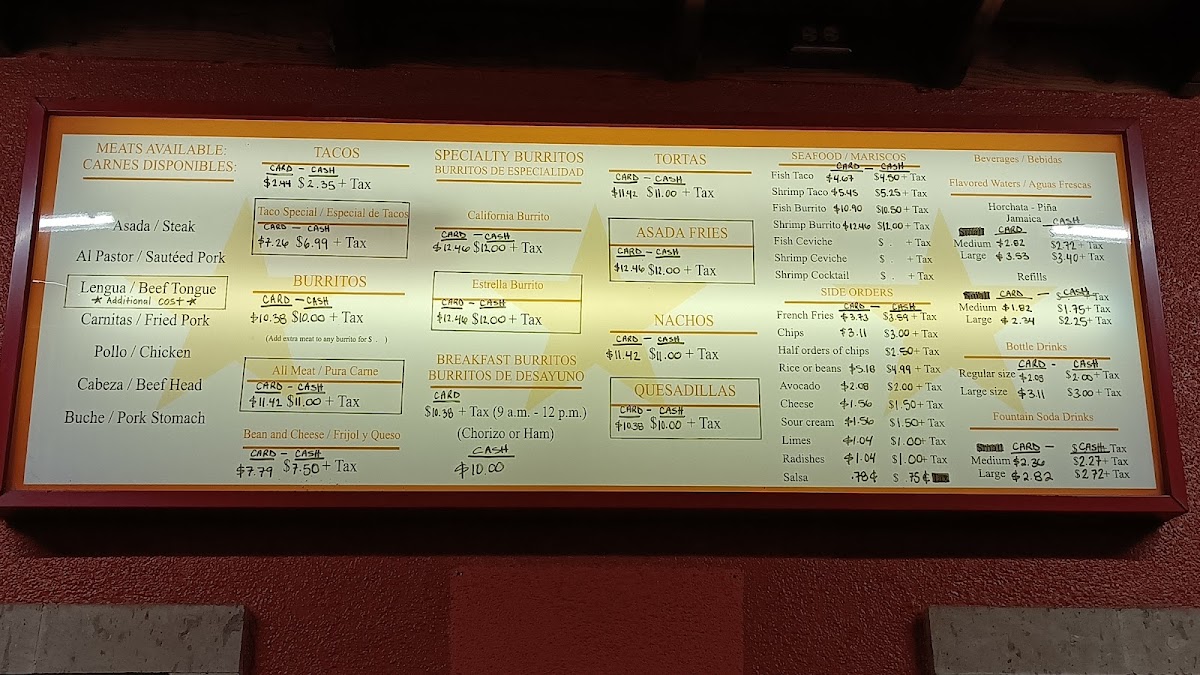 MEATS AVAILABLE:
CARNES DISPONIBLES:
Asada / Steak
Al Pastor / Sautéed Pork
Lengua / Beef Tongue
★ Additional cost ★
Carnitas / Fried Pork
Pollo / Chicken
Cabeza / Beef Head
Buche / Pork Stomach
TACOS
CARD – CASH
$2.44 $2.35 + Tax
Taco Special / Especial de Tacos
CARD – CASH
$7.26 $6.99 + Tax
BURRITOS
CARD – CASH
$10.38 $10.00 + Tax
(Add extra meat to any burrito for $ . )
All Meat / Pura Carne
CARD – CASH
$11.42 $11.00 + Tax
Bean and Cheese / Frijol y Queso
CARD – CASH
$7.79 $7.50 + Tax
SPECIALTY BURRITOS
BURRITOS DE ESPECIALIDAD
California Burrito
CARD – CASH
$12.46 $12.00 + Tax
Estrella Burrito
CARD – CASH
$12.46 $12.00 + Tax
BREAKFAST BURRITOS
BURRITOS DE DESAYUNO
CARD
$10.38 + Tax (9 a.m. - 12 p.m.)
(Chorizo or Ham)
CASH
$10.00
TORTAS
CARD – CASH
$11.42 $11.00 + Tax
ASADA FRIES
CARD – CASH
$12.46 $12.00 + Tax
NACHOS
CARD – CASH
$11.42 $11.00 + Tax
QUESADILLAS
CARD – CASH
$10.38 $10.00 + Tax
SEAFOOD / MARISCOS
CARD – CASH
Fish Taco $4.67 $4.50 + Tax
Shrimp Taco $5.45 $5.25 + Tax
Fish Burrito $10.90 $10.50 + Tax
Shrimp Burrito $12.46 $12.00 + Tax
Fish Ceviche $ . + Tax
Shrimp Ceviche $ . + Tax
Shrimp Cocktail $ . + Tax
SIDE ORDERS
CARD – CASH
French Fries $3.73 $3.59 + Tax
Chips $3.11 $3.00 + Tax
Half orders of chips $2.50 + Tax
Rice or beans $5.18 $4.99 + Tax
Avocado $2.08 $2.00 + Tax
Cheese $1.56 $1.50 + Tax
Sour cream $1.56 $1.50 + Tax
Limes $1.04 $1.00 + Tax
Radishes $1.04 $1.00 + Tax
Salsa .78¢ $ .75¢
Beverages / Bebidas
Flavored Waters / Aguas Frescas
Horchata - Piña
Jamaica
CARD CASH
Small $
Medium $2.82 $2.72 + Tax
Large $3.53 $3.40 + Tax
Refills
Small CARD – CASH $ Tax
Medium $1.82 $1.75 + Tax
Large $2.34 $2.25 + Tax
Bottle Drinks
CARD – CASH
Regular size $2.08 $2.00 + Tax
Large size $3.11 $3.00 + Tax
Fountain Soda Drinks
Small CARD – $ CASH Tax
Medium $2.36 $2.27 + Tax
Large $2.82 $2.72 + Tax